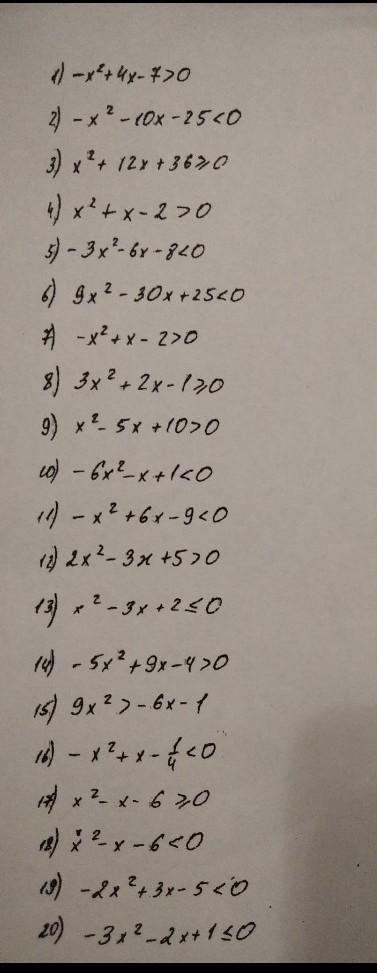 1) -x²+4x-7>0
2) -x²-10x-25<0
3) x²+12x+36⩾0
4) x²+x-2>0
5) -3x²-6x-8<0
6) 9x²-30x+25<0
7) -x²+x-2>0
8) 3x²+2x-1⩾0
9) x²-5x+10>0
10) -6x²-x+1<0
11) -x²+6x-9<0
12) 2x²-3x+5>0
13) x²-3x+2≤0
14) -5x²+9x-4>0
15) 9x²>-6x-1
16) -x²+x-1/4<0
17) x²-x-6⩾0
18) x²-x-6<0
19) -2x²+3x-5<0
20) -3x²-2x+1≤0